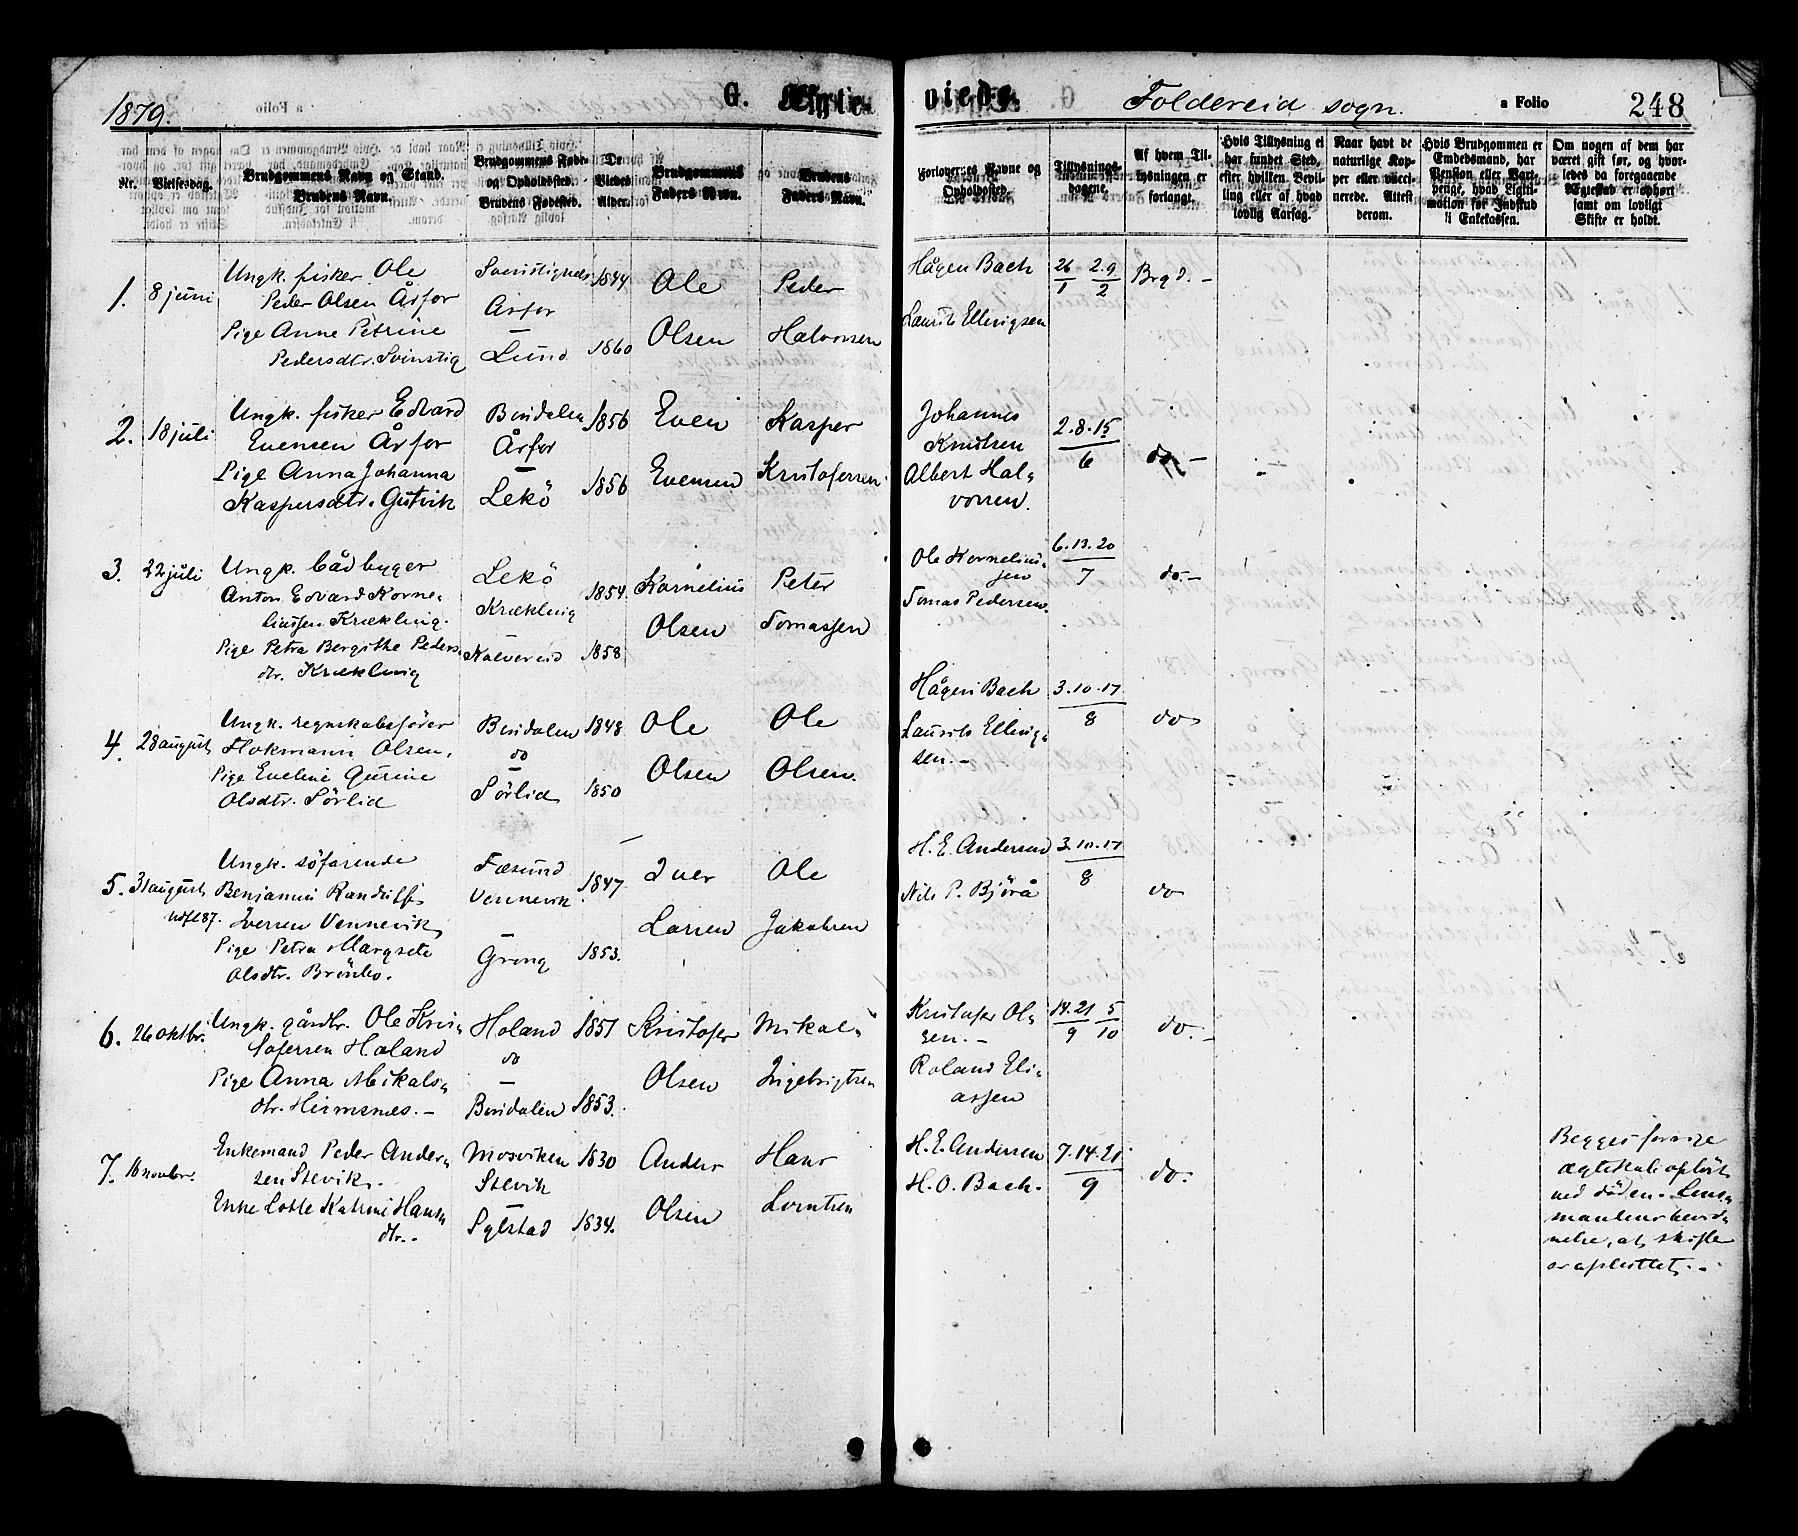 1879.
G. Ægte-
viede.
Foldereid sogn.
a Folio
248
Nr.
Vielsesdag.
Brudgommens Navn og Stand.
Brudens Navn.
Brudgommens Føde-
og Opholdssted.
Brudens Fødested.
De
Viedes
Alder.
Brudgommens
Faders Navn.
Brudens
Faders Navn.
Forlovernes Navne og
Opholdssted.
Tillysnings-
dagene.
Af hvem Til-
lysningen er
forlangt.
Hvis Tillysning ei
har fundet Sted,
efter hvilken Bevil-
ling eller af hvad
lovlig Aarsag.
Naar havt de
naturlige Kop-
per eller vacci-
nerede. Attest
derom.
Hvis Brudgommen er
Embedsmand, har
Pension eller Vart-
penge, hvad Legiti-
mation for Indskud
i Enkekassen.
Om nogen af dem har
været gift før, og hvor-
ledes da foregaaende
Ægteskab er ophørt
samt om lovligt
Skifte er holdt.
1. 8 juni
Ungk. fisker Ole
Peder Olsen Årfor
Pige Anne Petrine
Pedersdtr. Svinstig
Årfor
Lund
1844
1860
Ole
Olsen
Peder
Halvorsen
Hågen Bach
Laurits Ellingsen
26/1 2.9/2
Brgd. -
2. 18 juli
Ungk. fisker Edvard
Evensen Årfor
Pige Anna Johanna
Kaspersdtr. Gutvik
Bindalen
Årfor
Lekö
1856
1856
Even
Evensen
Kasper
Kristofersen
Johannes
Knutsen
Albert Hal-
vorsen.
2.8.15/6
do -
3. 22 juli
Ungk. båtbyger
Anton Edvard Korne-
liussen Krækling.
Pige Petra Bergithe Peders-
dtr. Krækling
Lekö
Krækling
Kalvereid
1854.
1858
Kornelius
Olsen
Peter
Tomassen
Ole Kornelius-
sen
Tomas Pedersen
6.13.20/7
do. -
4. 28 august
Ungk. regnskabsfører
Hokmann Olsen.
Pige Eveline Gurine
Olsdtr. Sörlid
Bindalen
do
Sörlid
1848
1850
Ole
Olsen
Ole
Olsen.
Hågen Bach
Laurits Elling-
sen. -
3.10.17/8
do
5. 31 august
Ungk. söfarende
Benjamin Randulf
Iversen Vennevik
Pige Petra Margrete
Olsdtr. Brönbo.
Vennevik
Grong
1847.
1853.
Iver
Larsen
Ole
Jakobsen
H. E. Andersen
Nils P. Bjørå
3.10.17/8
do
6. 26 oktbr.
Ungk. gårdbr. Ole Kris-
tofersen Haland
Pige Anna Mikals-
dtr. Heimsnes. -
Holand
do
Bindalen
1851
1853.
Kristofer
Olsen
Mikal
Ingebrigtsen
Kristofer Ol-
sen. -
Roland Eli-
assen
14.21/9 5/10
do. -
7. 16 novbr.
Enkemand Peder Ander-
sen Stevik.
Enke Lotte Katrine Hans-
dtr. -
Mosviken
Stevik
Sylstad
1830
1834.
Anders
Olsen
Hans
Lorntsen
H. E. Andersen
H. O. Bach.
7.14.21/9
do.
Begges forrige
ægteskab opløst
ved döden. Lens-
mandens bevid-
nelse, at skifte
er afsluttet. -